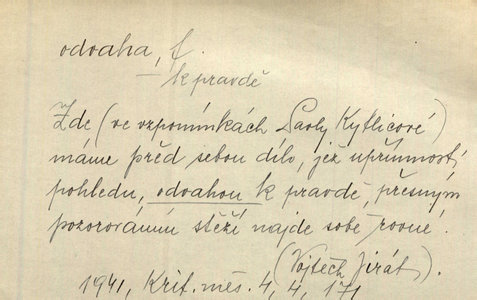 odvaha, f.
— k pravdě
Zde (ve vzpomínkách Pavly Kytlicové)
máme před sebou dílo, jež upřímností
pohledu, odvahou k pravdě, přesným
pozorováním stěží najde sobě rovné.
(Vojtěch Jirát).
1941, Krit. měs. 4, 4, 171